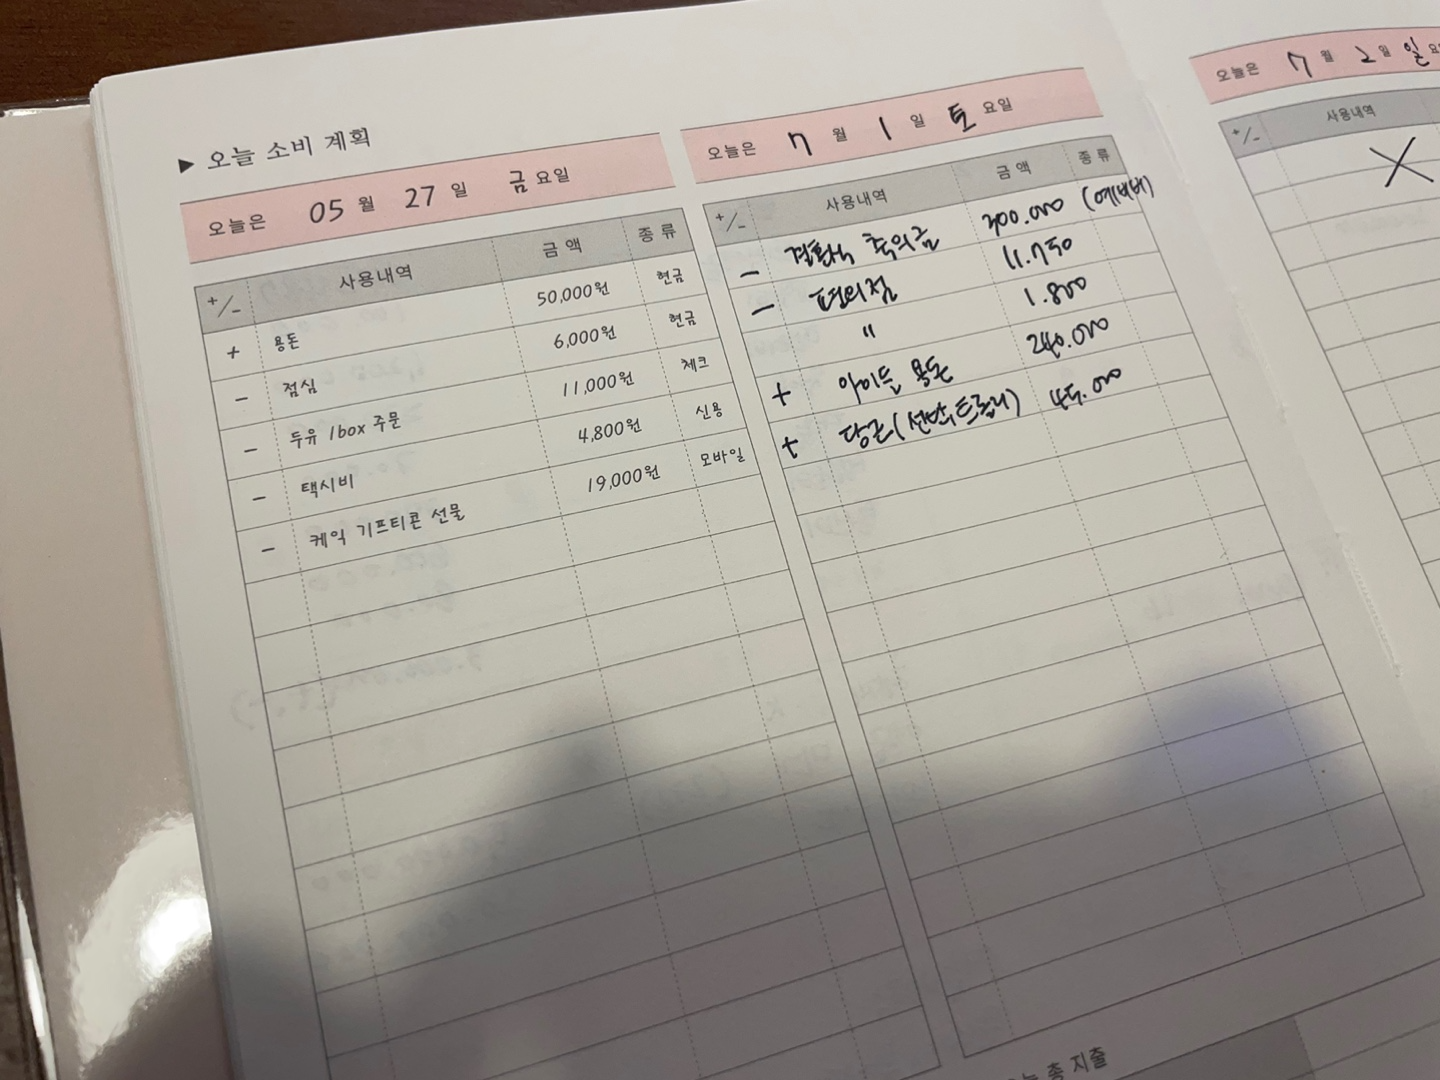 ▶ 오늘 소비 계획
오늘은 05 월 27 일 금 요일
+/- 사용내역 금 액 종 류
+ 용돈 50,000원 현금
- 점심 6,000원 현금
- 두유 1box 주문 11,000원 체크
- 택시비 4,800원 신용
- 케익 기프티콘 선물 19,000원 모바일
오늘은 7 월 1 일 토 요일
+/- 사용내역 금 액 종 류
- 결혼식 축의금 200.000 (예비비)
- 편의점 11.750
〃 1.800
+ 아이들 용돈 240.000
+ 당근( 45.000
오늘은 7 월 2 일 일 요
+/- 사용내역
X
총 지출